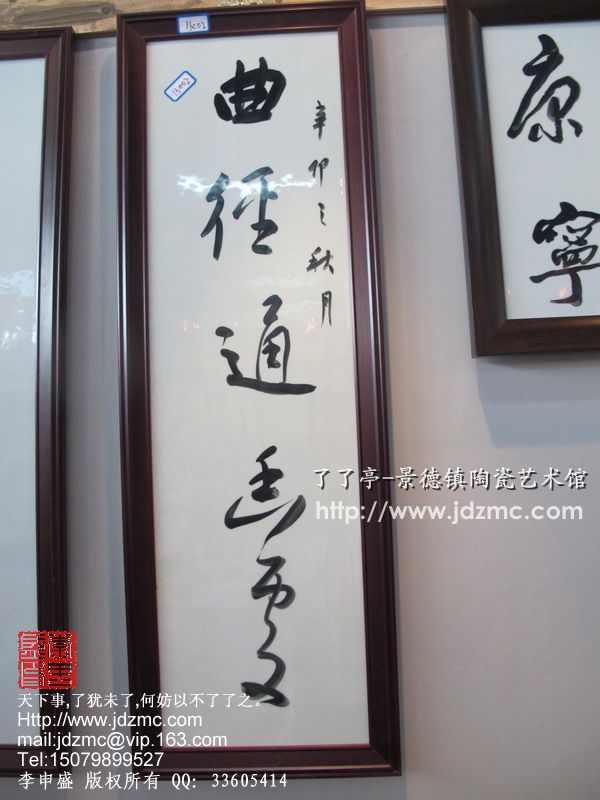 13002
13002
曲徑通幽處
辛卯之秋月
康寧
了了亭-景德镇陶瓷艺术馆
http://www.jdzmc.com
天下事,了犹未了,何妨以不了了之。
Http://www.jdzmc.com
mail:jdzmc@vip.163.com
Tel:15079899527
李申盛 版权所有 QQ: 33605414